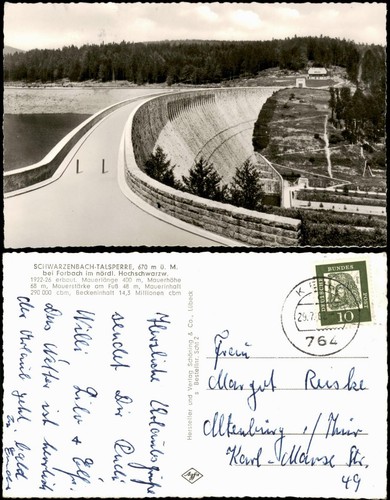 SCHWARZENBACH-TALSPERRE, 670 m ü. M.
bei Forbach im nördl. Hochschwarzw.
1922-26 erbaut, Mauerlänge 400 m, Mauerhöhe
68 m, Mauerstärke am Fuß 48 m, Mauerinhalt
290 000 cbm, Beckeninhalt 14,3 Millionen cbm
Herzliche Urlaubsgrüße
sendet Dir Rudi
Willi, Lilo + Elfi.
Das Wetter ist herrlich
der Urlaub geht bald
zu Ende
Hersteller und Verlag Schöning & Co., Lübeck
Agfa
DEUTSCHE BUNDESPOST
10
764
Frau
Margot Reiske
Altenburg i/Thür
Karl-Marx Str.
49